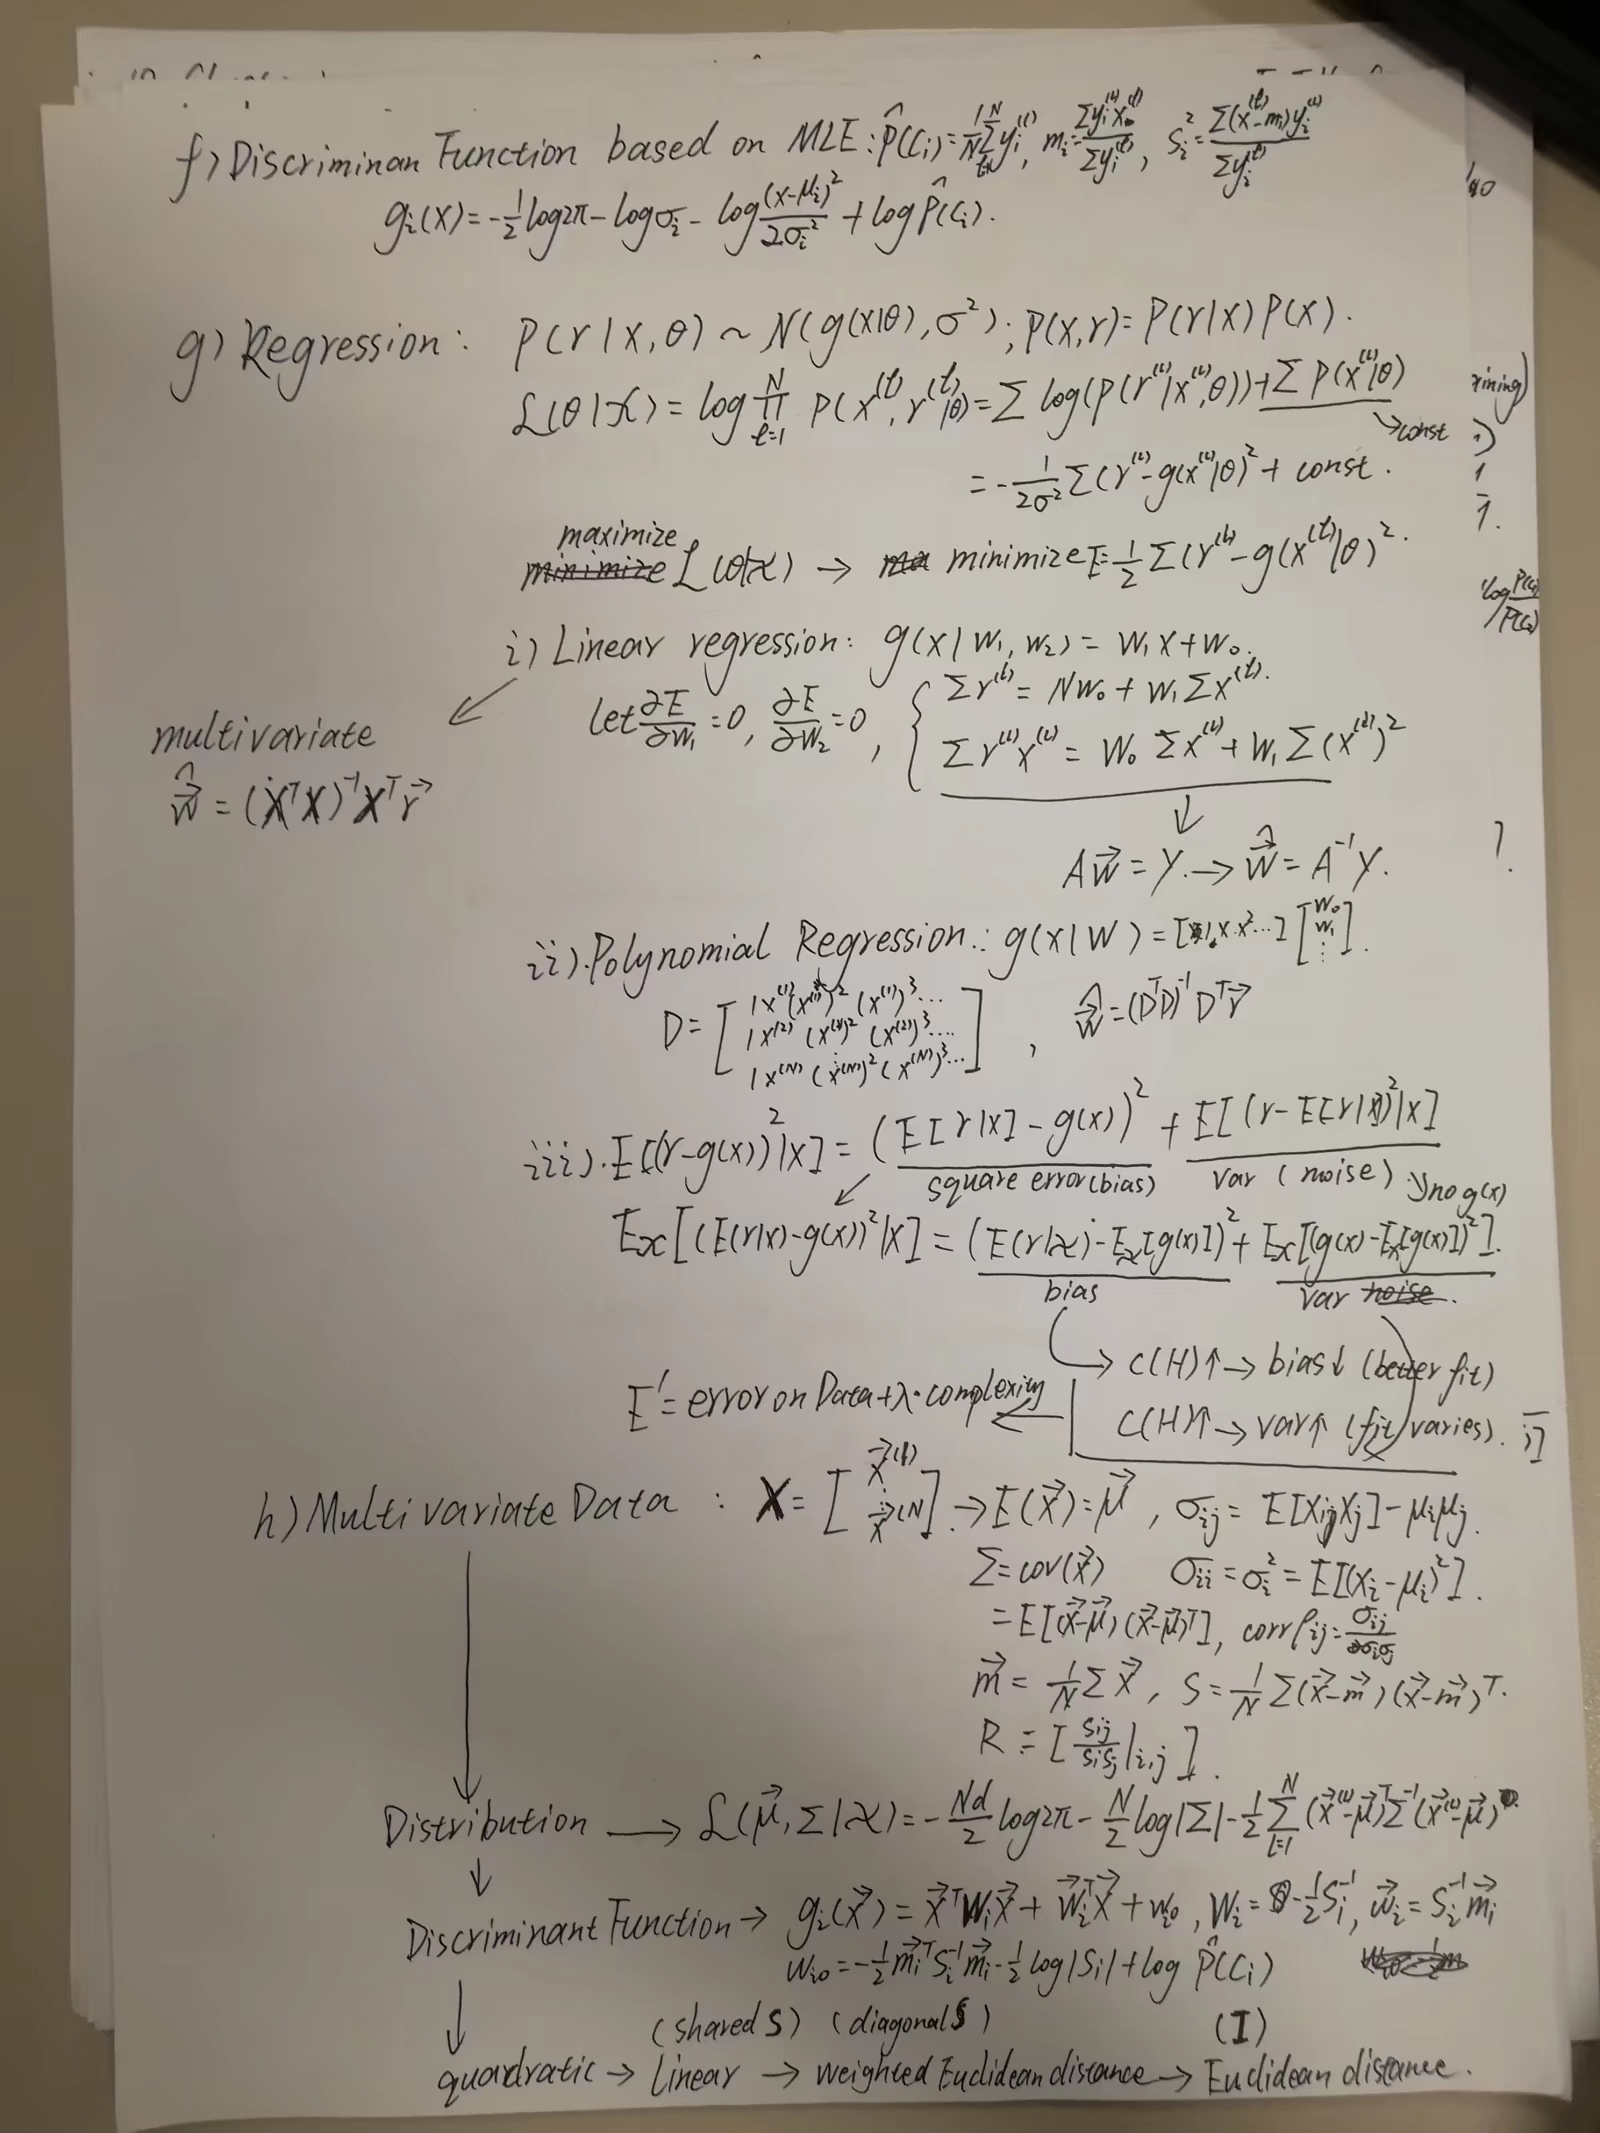 f) Discriminan Function based on MLE: P̂(Ci) = 1/N Σ_{t=1}^{N} yi^(t), mi = Σyi^(t)x^(t) / Σyi^(t), Si² = Σ(x^(t)-mi)yi^(t) / Σyi^(t)
gi(x) = -1/2 log2π - logσi - log (x-μi)²/2σi² + logP̂(Ci).
g) Regression: P(r|x,θ) ~ N(g(x|θ),σ²); P(x,r) = P(r|x)P(x).
L(θ|X) = log Π_{t=1}^{N} P(x^(t), r^(t)|θ) = Σ log(P(r^(t)|x^(t),θ)) + Σ P(x^(t)|θ)
↘ const
= -1/2σ² Σ(r^(t) - g(x^(t)|θ)² + const.
maximize
minimize L(θ|X) → ma minimize E = 1/2 Σ(r^(t) - g(x^(t)|θ)².
log P(C)/P(C2)
i) Linear regression: g(x|w1, w2) = w1x + w0.
let ∂E/∂w1 = 0, ∂E/∂w2 = 0, { Σr^(t) = Nw0 + w1Σx^(t).
Σr^(t)x^(t) = w0 Σx^(t) + w1Σ(x^(t))²
multivariate
ŵ = (XᵀX)⁻¹Xᵀr⃗
Aw⃗ = Y. → ŵ = A⁻¹Y.
ii). Polynomial Regression.: g(x|W) = [1, x x² ...] [w0 w1 ⋮].
D = [ 1 x^(1) (x^(1))² (x^(1))³ ...
1 x^(2) (x^(2))² (x^(2))³ ...
1 x^(N) (x^(N))² (x^(N))³ ... ] , ŵ = (DᵀD)⁻¹Dᵀr⃗
iii). E[(r-g(x))²|x] = (E[r|x] - g(x))² + E[(r-E[r|x])²|x]
square error (bias) var (noise) ↘ no g(x)
Ex[(E(r|x)-g(x))²|x] = (E(r|x) - Ex[g(x)])² + Ex[(g(x)-Ex[g(x)])²].
bias var noise.
→ C(H)↑ → bias↓ (better fit)
E' = error on Data + λ·complexity ←
C(H)↑ → var↑ (fit varies).
h) Multivariate Data : X = [x⃗^(1) ⋮ x⃗^(N)] → E(x⃗) = μ⃗, σij = E[xixj] - μiμj.
Σ = cov(x⃗) σii = σi² = E[(xi-μi)²].
= E[(x⃗-μ⃗)(x⃗-μ⃗)ᵀ], corr ρij = σij/σiσj
m⃗ = 1/N Σx⃗, S = 1/N Σ(x⃗-m⃗)(x⃗-m⃗)ᵀ.
R = [sij/sisj |i,j].
Distribution → L(μ⃗, Σ|X) = -Nd/2 log2π - N/2 log|Σ| - 1/2 Σ_{t=1}^{N} (x⃗^(t)-μ⃗)ᵀΣ⁻¹(x⃗^(t)-μ⃗)
↓
Discriminant Function → gi(x⃗) = x⃗ᵀWix⃗ + w⃗iᵀx⃗ + wi0, Wi = -1/2 Si⁻¹, w⃗i = Si⁻¹m⃗i
wi0 = -1/2 m⃗iᵀSi⁻¹m⃗i - 1/2 log|Si| + log P̂(Ci)
(shared S) (diagonal S) (I)
quadratic → Linear → weighted Euclidean distance → Euclidean distance.